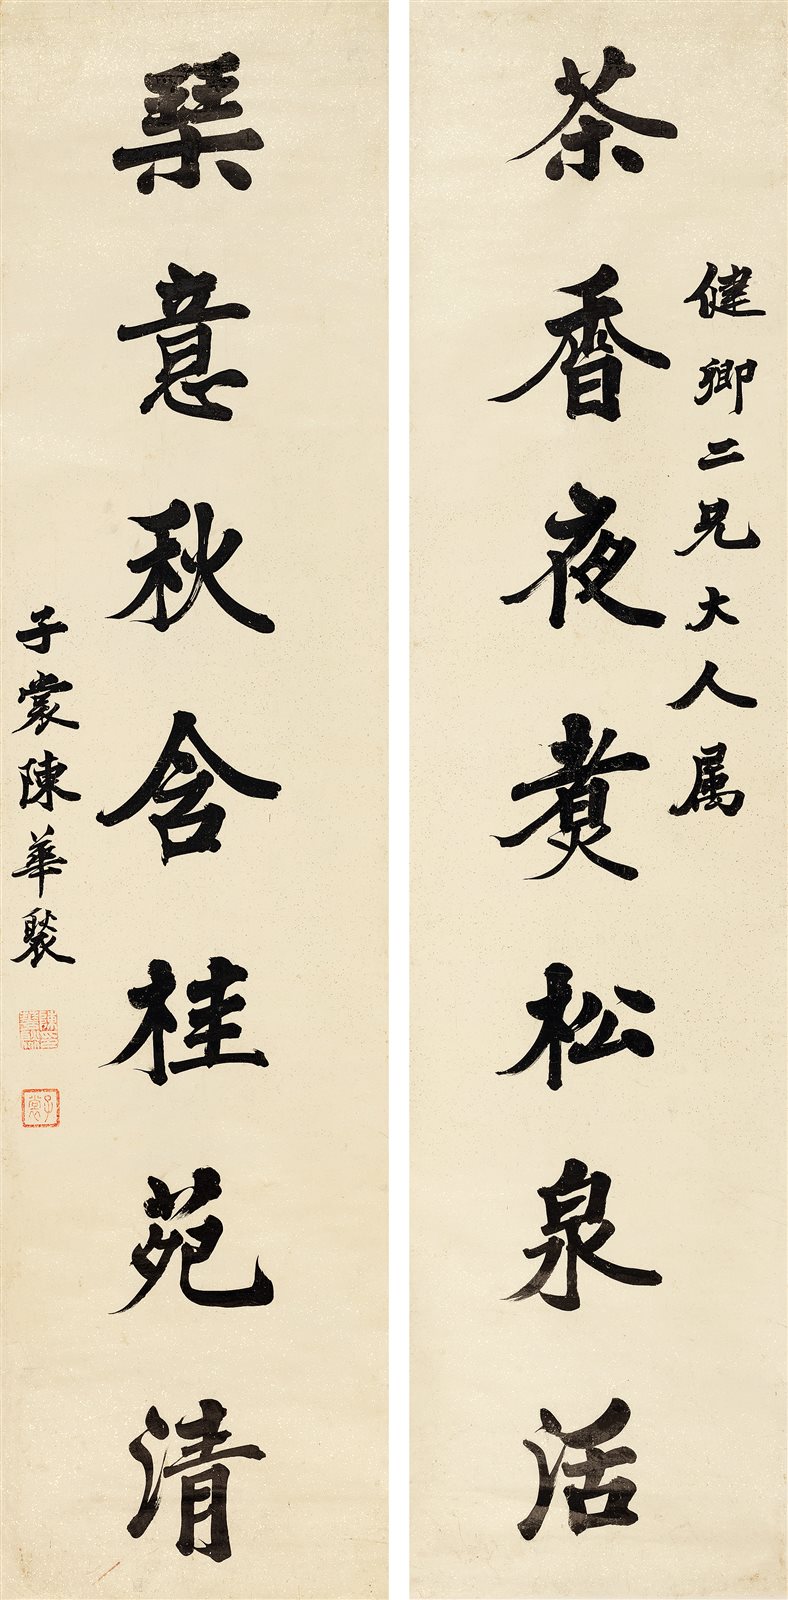 健卿二兄大人属
茶香夜煑松泉活
琹意秋含桂苑清
子裳陳華褧
子裳